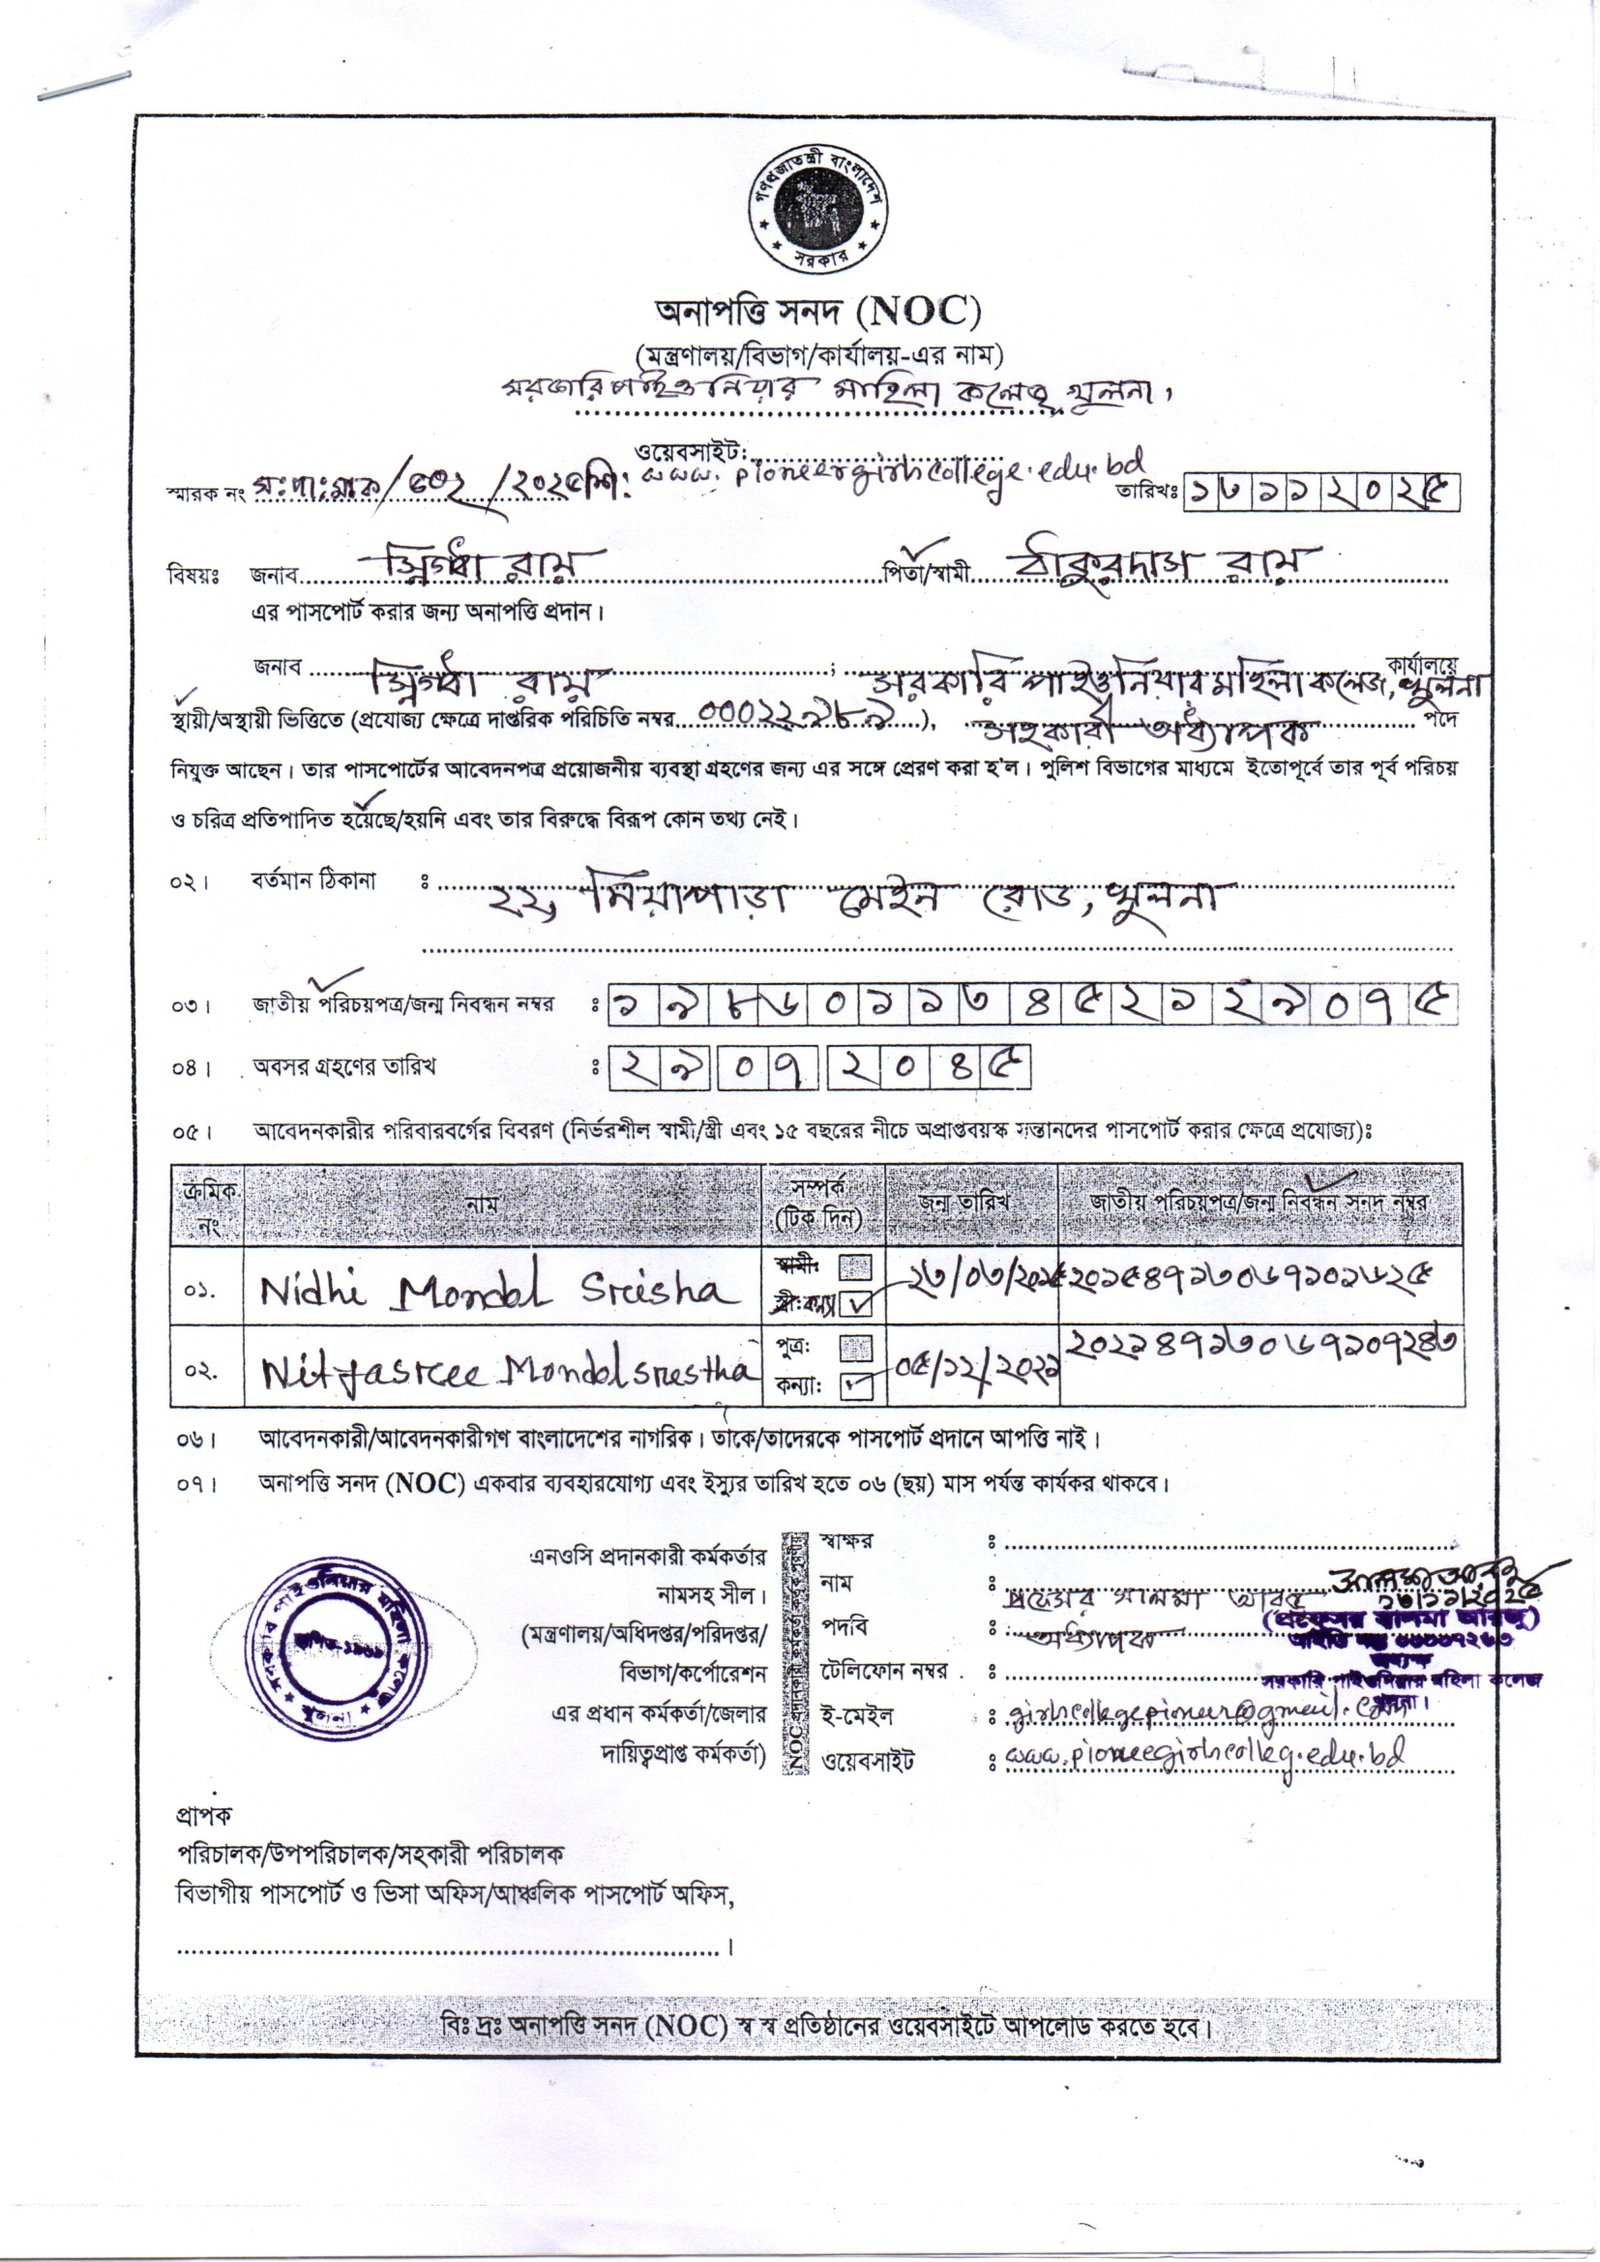 গণপ্রজাতন্ত্রী বাংলাদেশ
সরকার
অনাপত্তি সনদ (NOC)
(মন্ত্রণালয়/বিভাগ/কার্যালয়-এর নাম)
সরকারি পাইওনিয়ার মহিলা কলেজ, খুলনা।
ওয়েবসাইট: www.pioneergirlscollege.edu.bd
স্মারক নং স:পা:মক/ /২০২৫ তারিখঃ ১৩১১২০২৫
বিষয়ঃ জনাব স্নিগ্ধা রায় পিতা/স্বামী ঠাকুরদাস রায়
এর পাসপোর্ট করার জন্য অনাপত্তি প্রদান।
জনাব স্নিগ্ধা রায় ; সরকারি পাইওনিয়ার মহিলা কলেজ, খুলনা কার্যালয়ে
স্থায়ী/অস্থায়ী ভিত্তিতে (প্রযোজ্য ক্ষেত্রে দাপ্তরিক পরিচিতি নম্বর ০০০২২৯৮৯), সহকারী অধ্যাপক পদে
নিযুক্ত আছেন। তার পাসপোর্টের আবেদনপত্র প্রয়োজনীয় ব্যবস্থা গ্রহণের জন্য এর সঙ্গে প্রেরণ করা হ'ল। পুলিশ বিভাগের মাধ্যমে ইতোপূর্বে তার পূর্ব পরিচয়
ও চরিত্র প্রতিপাদিত হয়েছে/হয়নি এবং তার বিরুদ্ধে বিরূপ কোন তথ্য নেই।
০২। বর্তমান ঠিকানা ঃ ২২, মিয়াপাড়া মেইন রোড, খুলনা
০৩। জাতীয় পরিচয়পত্র/জন্ম নিবন্ধন নম্বর ঃ ১৯৮৬০১১৩৪৫২১২৯০৭৫
০৪। অবসর গ্রহণের তারিখ ঃ ২৯ ০৭ ২০৪৫
০৫। আবেদনকারীর পরিবারবর্গের বিবরণ (নির্ভরশীল স্বামী/স্ত্রী এবং ১৫ বছরের নীচে অপ্রাপ্তবয়স্ক সন্তানদের পাসপোর্ট করার ক্ষেত্রে প্রযোজ্য)ঃ
ক্রমিক নং নাম সম্পর্ক (টিক দিন) জন্ম তারিখ জাতীয় পরিচয়পত্র/জন্ম নিবন্ধন সনদ নম্বর
০১. Nidhi Mondal Sreisha স্বামীঃ স্ত্রীঃ কন্যা ২৩/০৩/২০১৫ ২০১৫৪৭১৩০৬৭১০১৬২৫
০২. Nityasree Mondal srestha পুত্রঃ কন্যাঃ ০৫/১২/২০২১ ২০২১৪৭১৩০৬৭১০৭২৪৩
০৬। আবেদনকারী/আবেদনকারীগণ বাংলাদেশের নাগরিক। তাকে/তাদেরকে পাসপোর্ট প্রদানে আপত্তি নাই।
০৭। অনাপত্তি সনদ (NOC) একবার ব্যবহারযোগ্য এবং ইস্যুর তারিখ হতে ০৬ (ছয়) মাস পর্যন্ত কার্যকর থাকবে।
সরকারি পাইওনিয়ার মহিলা কলেজ
খুলনা
এনওসি প্রদানকারী কর্মকর্তার
নামসহ সীল।
(মন্ত্রণালয়/অধিদপ্তর/পরিদপ্তর/
বিভাগ/কর্পোরেশন
এর প্রধান কর্মকর্তা/জেলার
দায়িত্বপ্রাপ্ত কর্মকর্তা)
NOC প্রদানকারী কর্তৃক পূরণীয়
স্বাক্ষর ঃ
নাম ঃ প্রফেসর সালমা আরজু
১৩/১১/২০২৫
(প্রফেসর সালমা আরজু)
পদবি ঃ অধ্যাপক
অধ্যক্ষ
টেলিফোন নম্বর ঃ
সরকারি পাইওনিয়ার মহিলা কলেজ
খুলনা।
ই-মেইল ঃ girlscollegepioneer@gmail.com
ওয়েবসাইট ঃ www.pioneegirlscolleg.edu.bd
প্রাপক
পরিচালক/উপপরিচালক/সহকারী পরিচালক
বিভাগীয় পাসপোর্ট ও ভিসা অফিস/আঞ্চলিক পাসপোর্ট অফিস,
বিঃ দ্রঃ অনাপত্তি সনদ (NOC) স্ব স্ব প্রতিষ্ঠানের ওয়েবসাইটে আপলোড করতে হবে।